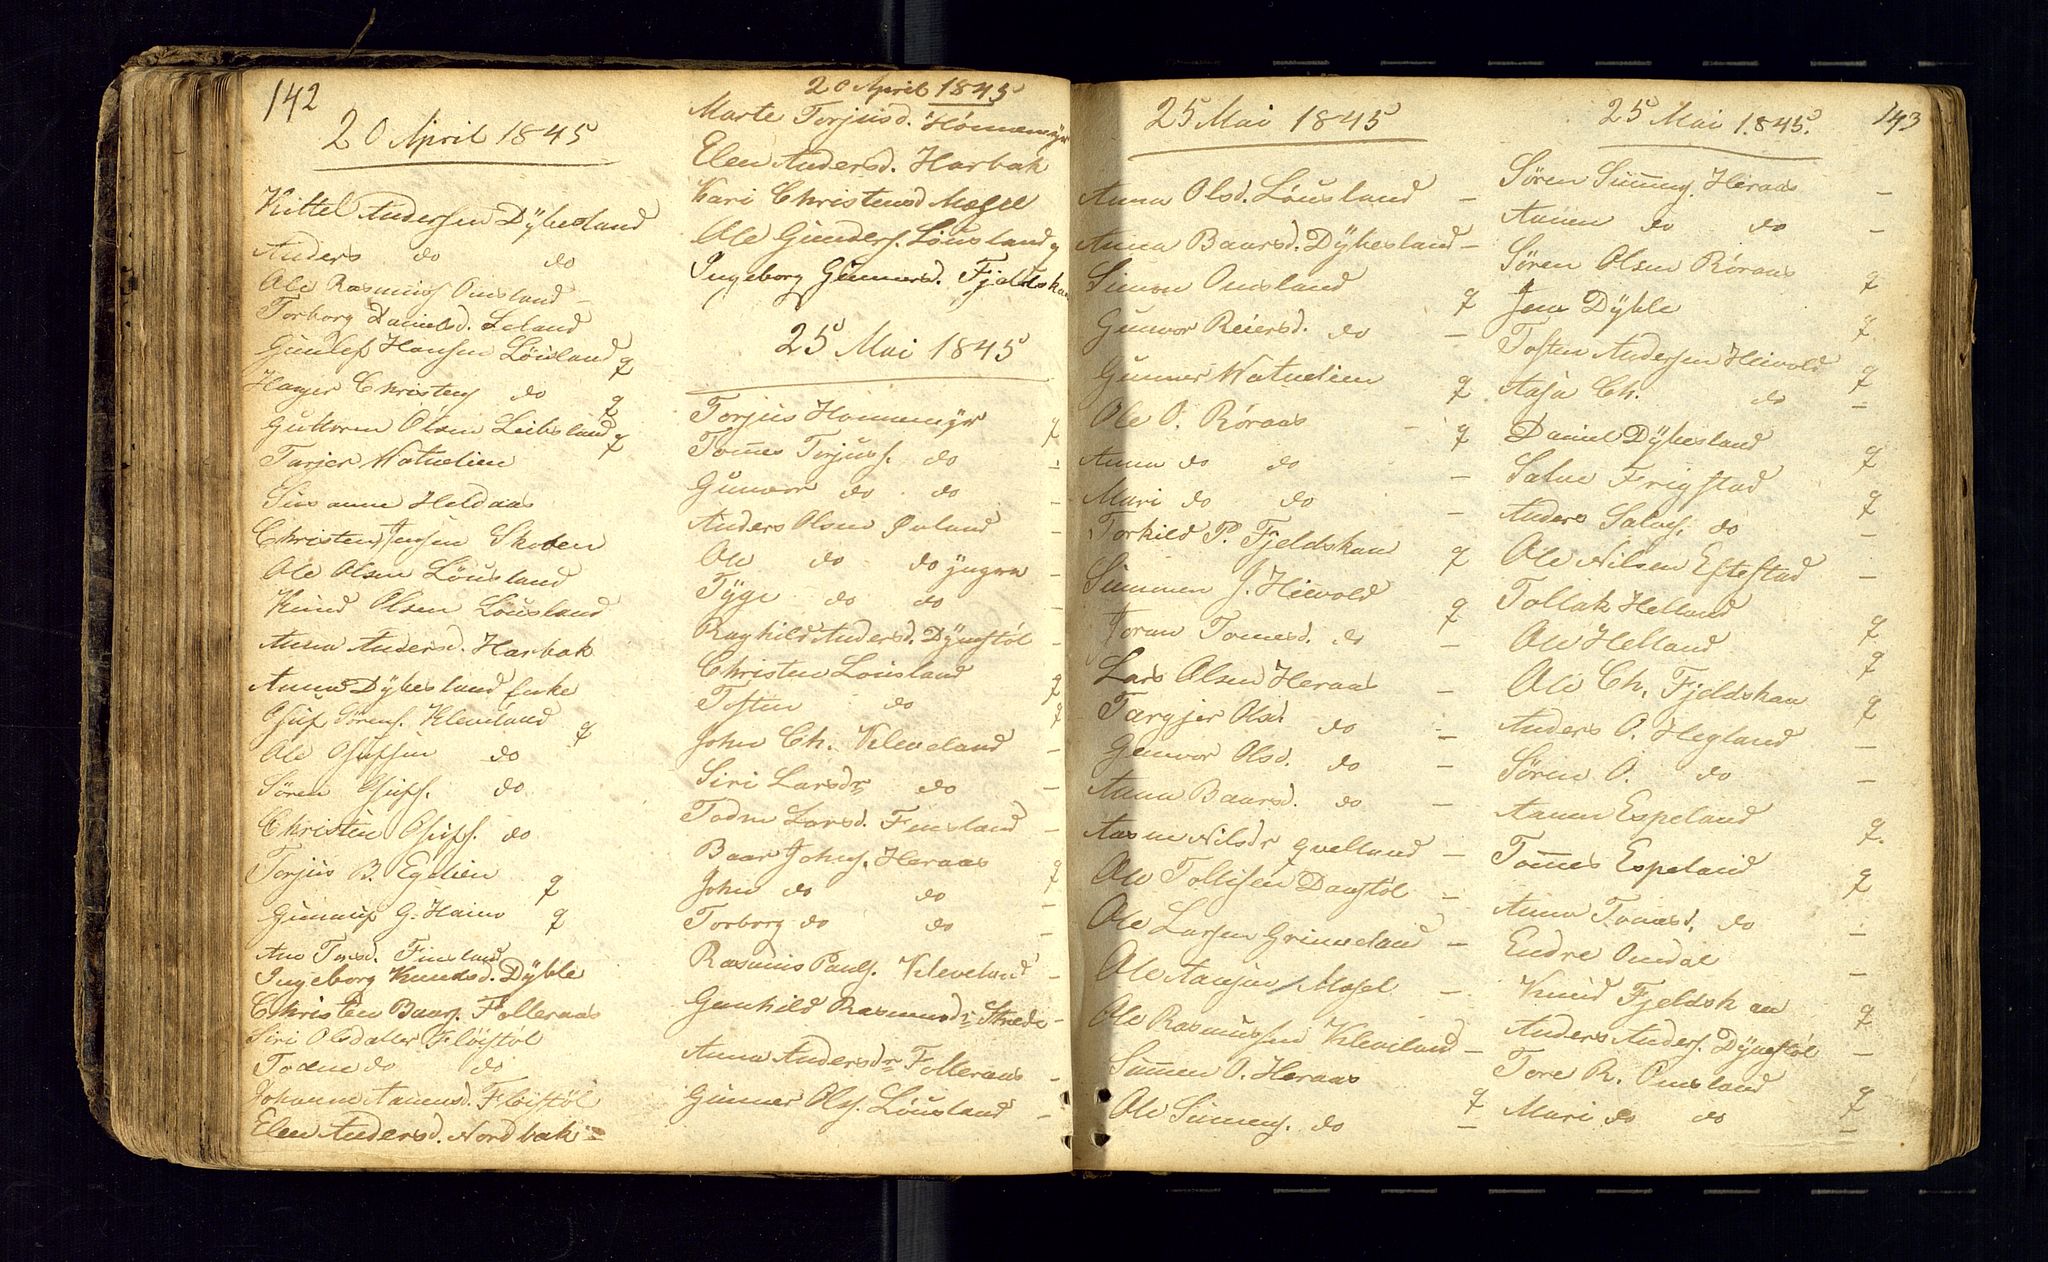 142
20 April 1845
Kittel Andersen Dÿbesland
Anders do do
Ole Rasmus Omsland –
Torborg Danielsd. Leland
Gunlef Hansen Löusland q
Haager Christens do q
Guttoren Olsen Leibsland q
Tarjer Watnelien
Susanne Heldaas
Christen Jensen Skoben
Ole Olsen Löusland
Knud Olsen Lousland
Anna Andersd. Harbak
Anna Dÿbesland Enke
Osuf Sörens. Kleveland q
Ole Osufsen do
Sören Osufs. do
Christen Osufs. do
Torjus B. Egelien q
Gunuf G. Haino q
Ane Torsd. Finsland
Ingeborg Knudsd. Dÿble
Christen Baars. Folleraas
Siri Olsdatter Flöistöl
Todne do do
Johanne Aanensd. Flöistöl
Elen Andersd. Nordbak –
20 April 1845
Marte Torjusd. Hommemÿr
Elen Andersd. Harbak
Kari Christensd Mosel
Ole Gunders. Lousland q
Ingeborg Gunnarsd. Fjeldskaa
25 Mai 1845
Torjus Hommemÿr q
Tomes Torjuss. do –
Gunvor do do –
Anders Olsen Övland –
Ole do do ÿngre –
Tÿge do do –
Raghild Andersd. Dÿnestöl –
Christen Lousland q
Tosten do q
John Ch. Kleveland –
Siri Larsdr do –
Todne Larsd. Finsland –
Baar Johns. Heraas q
John do do –
Torborg do do –
Rasmus Pauls. Kleveland –
Gunhild Rasmusdr Strede –
Anna Andersdr Folleraas –
Gunner Ols. Löusland –
25 Mai 1845
Anna Olsd. Löusland –
Anna Baarsd. Dÿbesland –
Simon Omsland q
Gunvor Reiersd. do –
Gunner Watnelien q
Ole O. Röraas – q
Anna do do –
Mari do do –
Torkild P. Fjeldskaa q
Summen J. Hievold q
Joran Tomesd. do –
Lars Olsen Heraas –
Targjer Olsd. do –
Gunvor Olsd. do –
Anna Baarsd. do –
Aasne Nilsdr qvelland –
Ole Tollisen Danstöl –
Ole Larsen Grimeland –
Ole Aansen Mosel –
Ole Rasmussen Kleveland –
Summen O. Heraas q
Ole Summens. do –
25 Mai 1845. 143
Sören Summens. Heraas –
Aanen do do –
Sören Olsen Röraas q
Jens Dÿble q
Tosten Andersen Hievold q
Aasa Ch. do –
Daniel Dÿbesland q
Salve Frigstad q
Anders Salves. do –
Ole Nilsen Eftestad –
Tollak Helland q
Ole Helland q
Ole Ch. Fjeldskaa q
Anders O. Hegland –
Sören O. do –
Aanen Espeland q.
Tomes Espeland q
Anna Tomesd. do –
Endre Omdal –
Knud Fjeldskaa q
Anders Anders. Dÿnestöl –
Tore R. Omsland q
Mari do do –